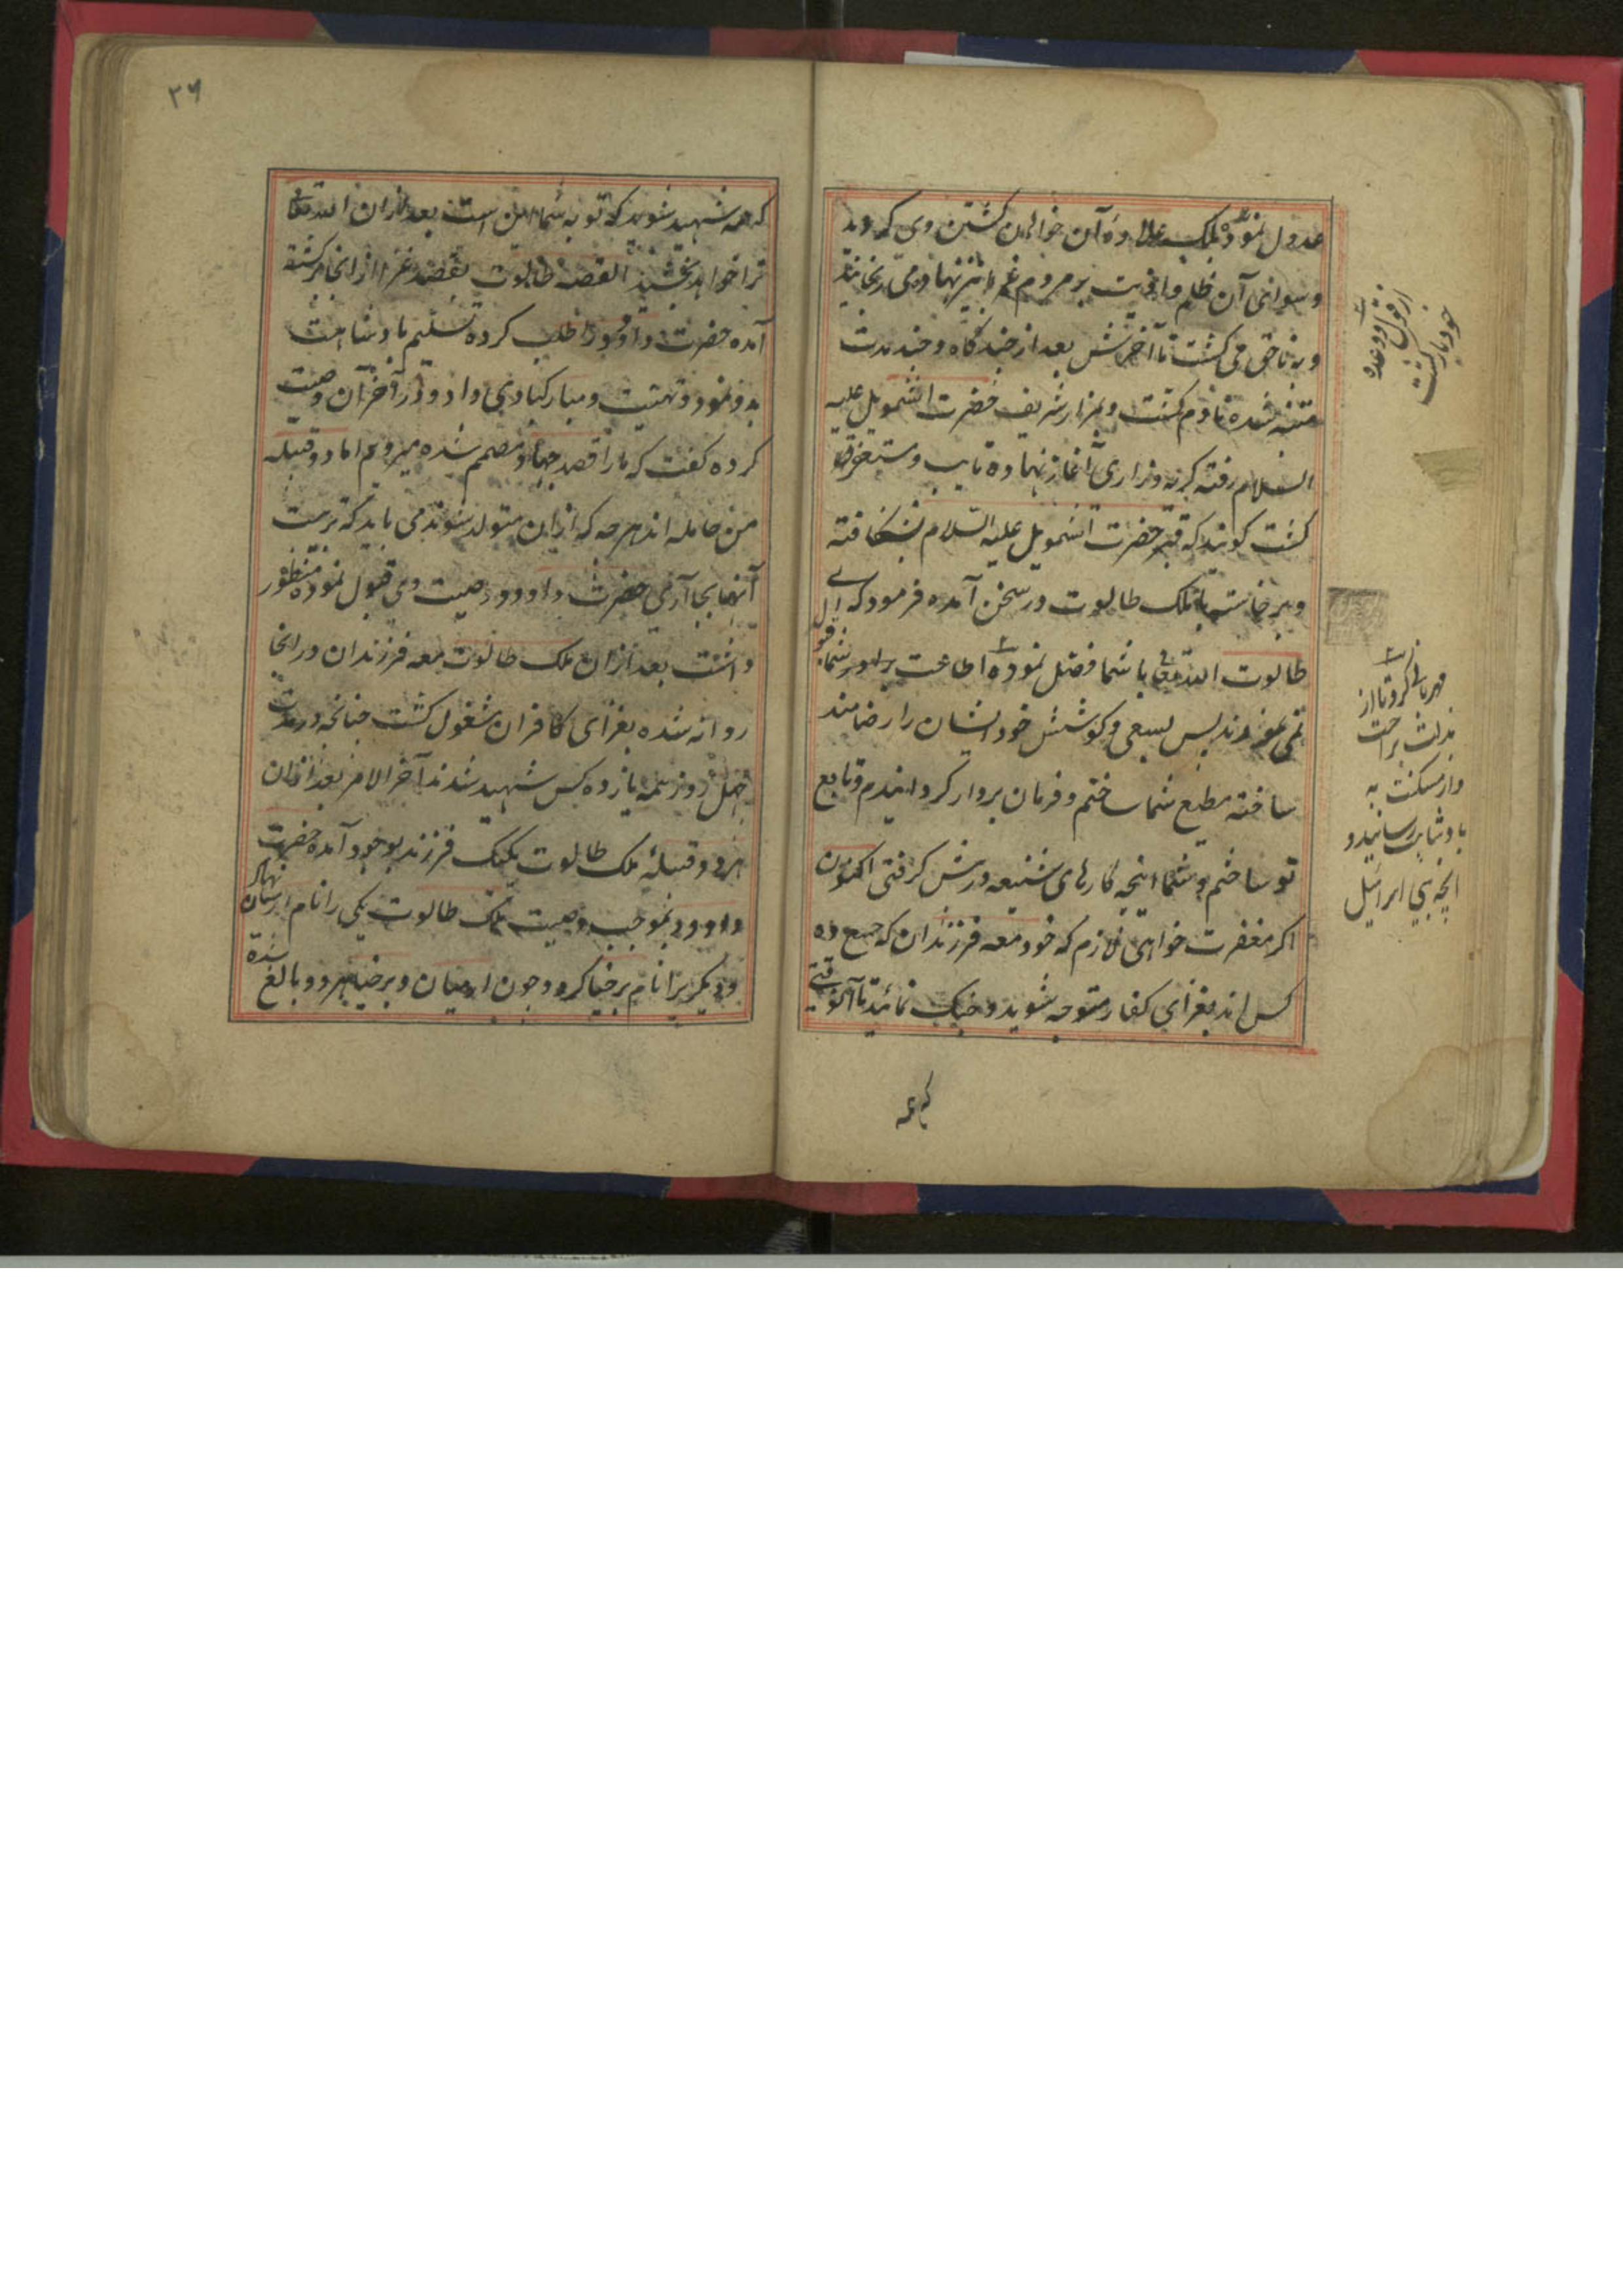 عدول نموده بلک علاوه آن خواهان کشتن وی کردید
و سوای آن ظلم و اذیت بر مردم غیر هم نهاده می رنجانید
و به ناحق می کشت تا آخرش بعد از چندگاه و چند مدت
متنبه شده نادم کشت و بمزار شریف حضرت اشمویل علیه
السلام رفته کریه و زاری آغاز نهاده تایب و مستغفر
کشت کویند که قبر حضرت اشمویل علیه السلام شکافته
و برخاسته با ملک طالوت در سخن آمده فرمود که ای
طالوت الله تعالی با شما فضل نموده اطاعت شما قبول
نمی نمودند پس بسعی و کوشش خود ایشان را رضامند
ساخته مطیع شما ساختم و فرمان بردار کردانیدم و تابع
تو ساختم و شما اینچه کارهای شنیعه ورزش کرفتی اکنون
اکر مغفرت خواهی لازم که خود معه فرزندان که جمیع ده
کس اند بغزای کفار متوجه شوید و جنک نمائید تا آنوقتی
که همه
از قول
خود بازکشت
مهربانی کرد و تا از
مذلت براحت
و از مسکنت به
بادشاهی رسانید و
انچه بنی اسرائیل
۲۶
که همه شهید شوند که توبه شما همین است بعد ازان الله تعالی
ترا خواهد بخشید القصه طالوت بقصد غزا از انجا برکشته
آمده حضرت داوود را طلب کرده تسلیم بادشاهت
بدو نمود و تهنیت و مبارکبادی داد و در آخر آن وصیت
کرده کفت که ما را قصد جهاد مصمم شده میرویم اما دو قبیله
من حامله اند هرچه که ازان متولد شوند می باید که تربیت
آنها بجا آری حضرت داوود وصیت وی قبول نموده منظور
داشت بعد ازان ملک طالوت معه فرزندان در انجا
روانه شده بغزای کافران مشغول کشت چنانچه در مدت
چهل روز همه یازده کس شهید شدند آخر الامر بعد ازان
هر دو قبیلهٔ ملک طالوت یکیک فرزند بوجود آمده حضرت
داوود بموجب وصیت ملک طالوت یکی را نام ارمیان نهاد
و دیکریرا نام برخیا کرد و چون ارمیان و برخیا هر دو بالغ شده